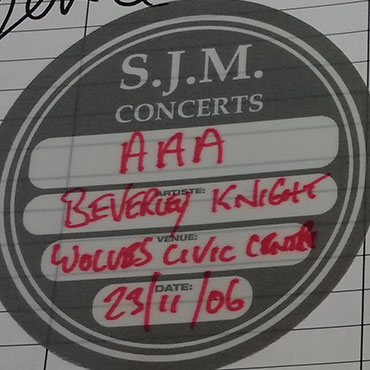 S.J.M.
CONCERTS
AAA
ARTISTE:
BEVERLEY KNIGHT
VENUE:
WOLVES CIVIC CENTRE
DATE:
23/11/06